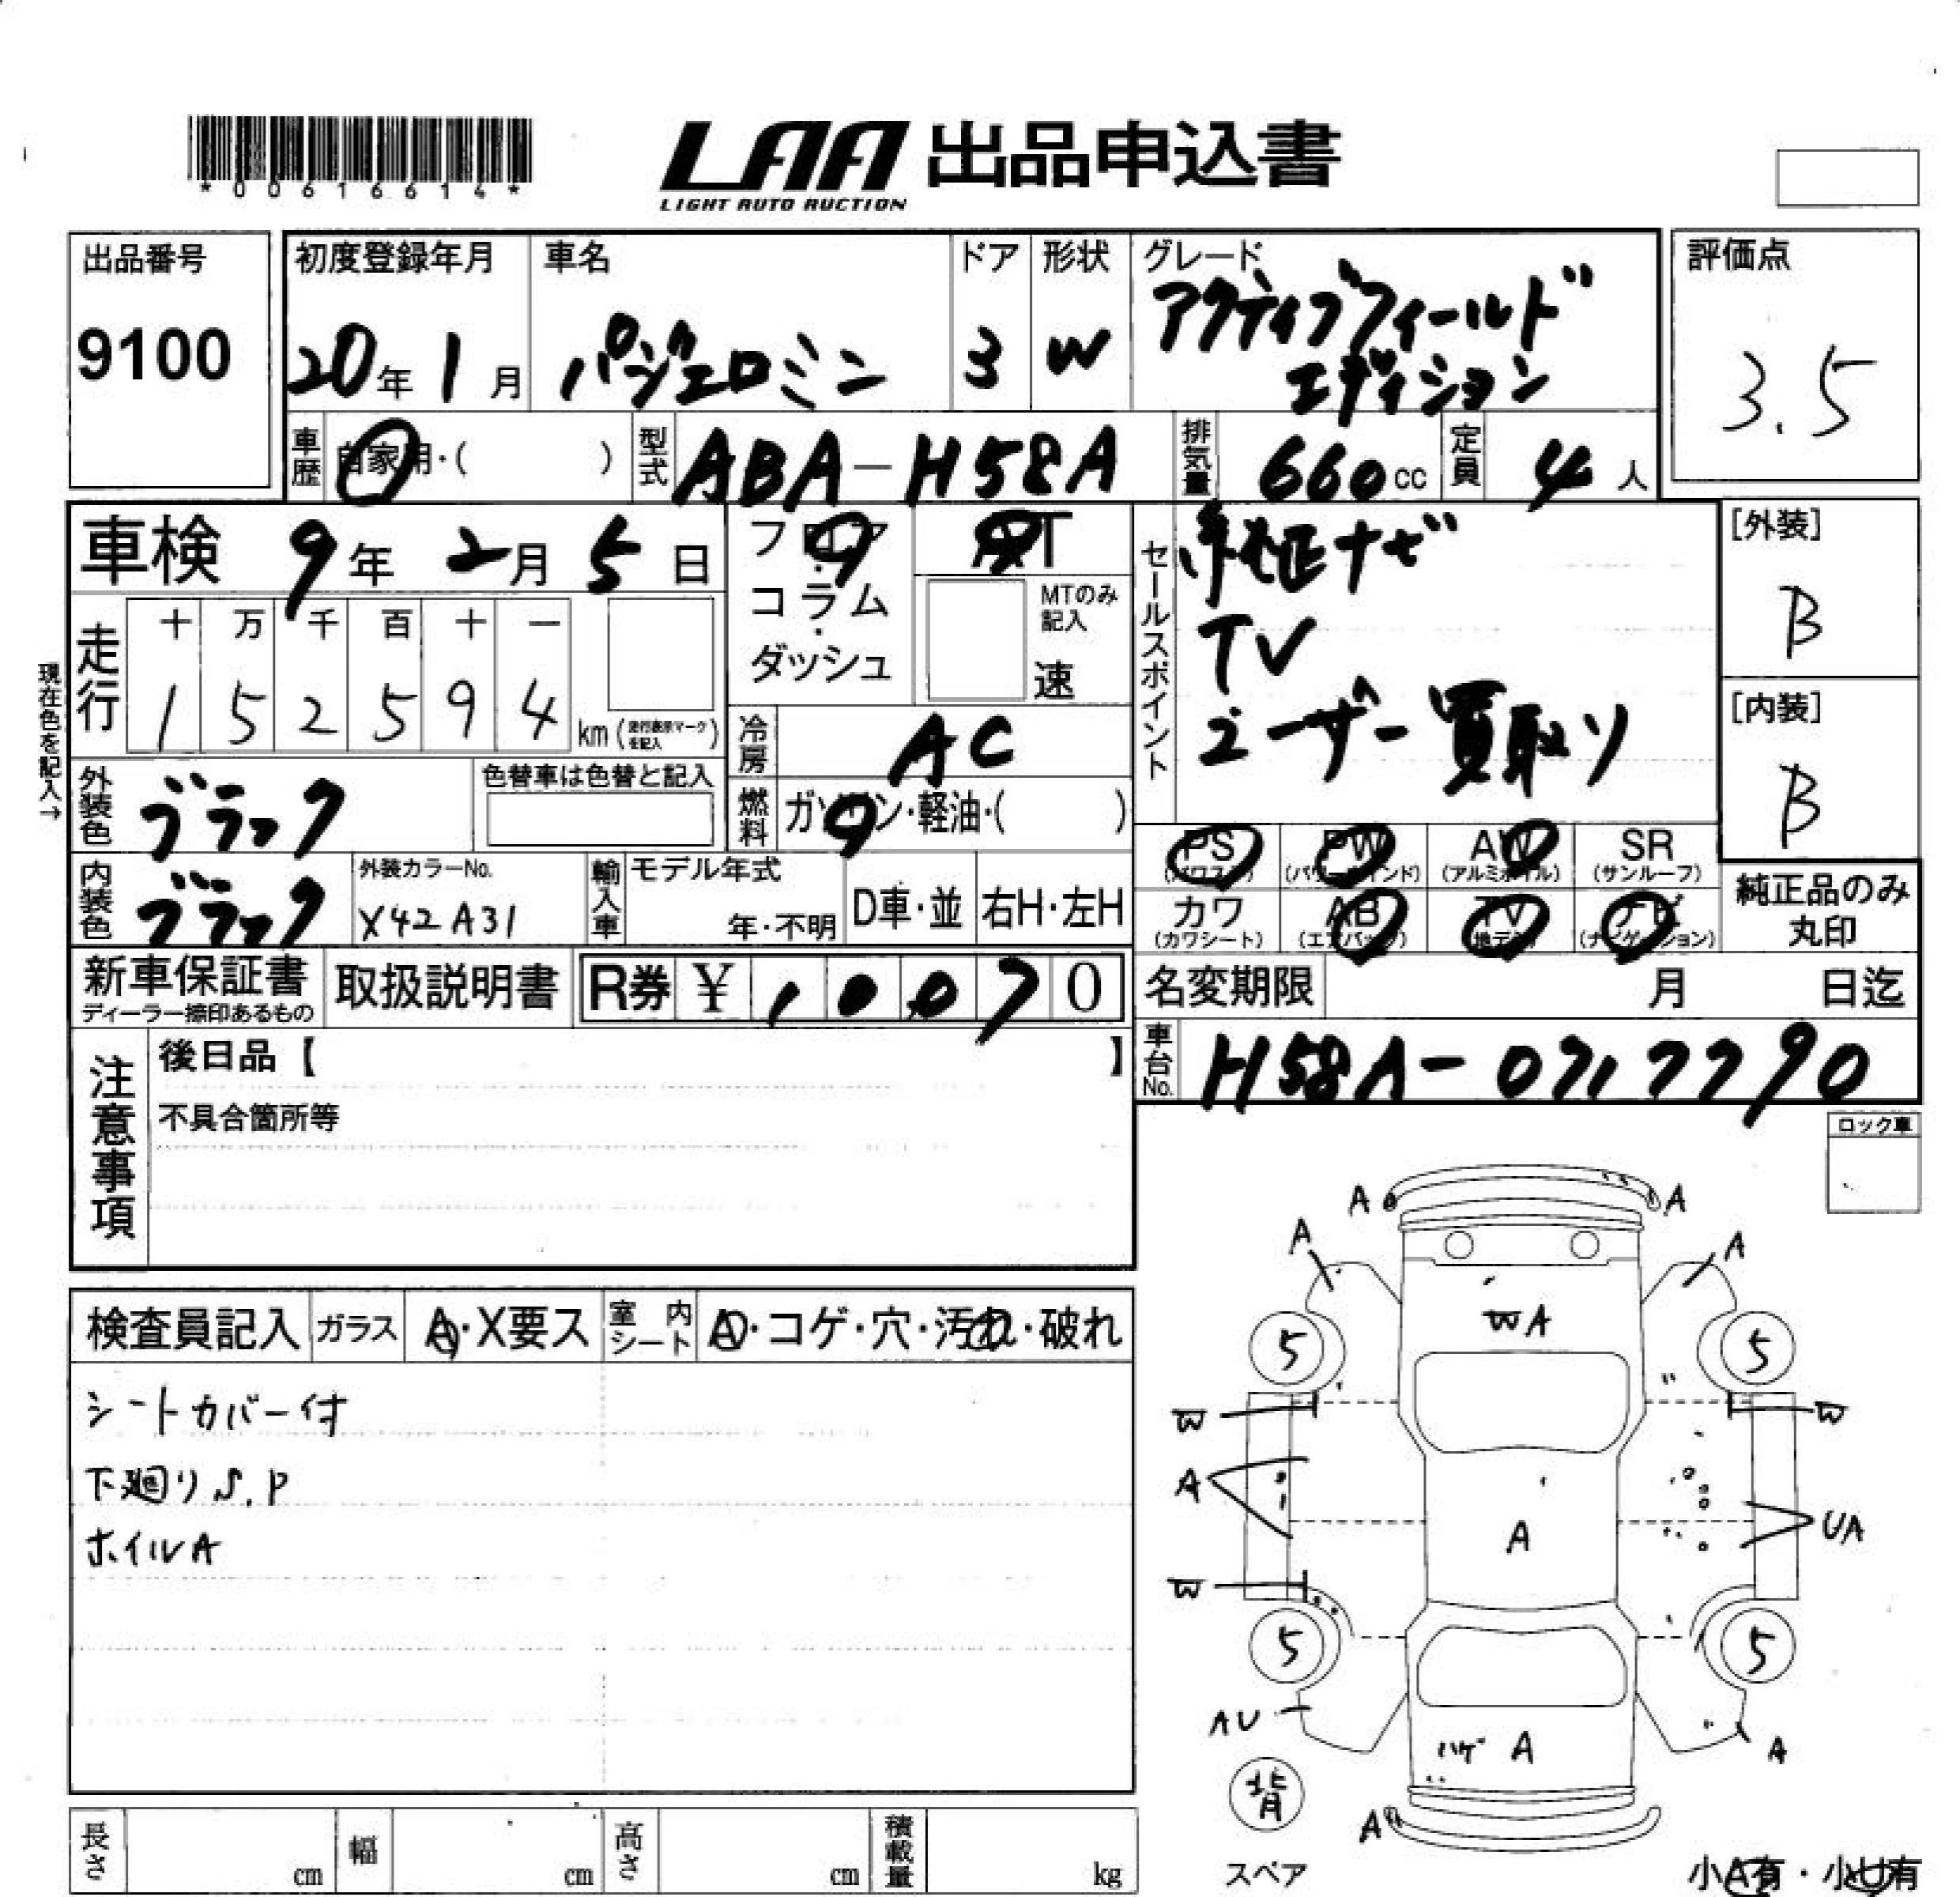 *00616614*
LAA 出品申込書
LIGHT AUTO AUCTION
出品番号
9100
初度登録年月
20年1月
車名
パジェロミニ
ドア
3
形状
W
グレード
アクティブフィールド
エディション
評価点
3.5
車歴 自家用・( )
型式 ABA-H58A
排気量 660cc
定員 4人
車検 9年2月5日
フロア
・
コラム
・
ダッシュ
AT
MTのみ
記入
速
セールスポイント
純正ナビ
TV
ユーザー買取り
[外装]
B
[内装]
B
現在色を記入→
走行
十 万 千 百 十 一
1 5 2 5 9 4 km(走行表示マークを記入)
冷房 AC
燃料 ガソリン・軽油・( )
外装色 ブラック
色替車は色替と記入
内装色 ブラック
外装カラーNo.
X42 A31
輸入車
モデル年式
年・不明
D車・並
右H・左H
PS
(パワステ)
PW
(パワーウインド)
AW
(アルミホイル)
SR
(サンルーフ)
カワ
(カワシート)
AB
(エアバック)
TV
(地デジ)
ナビ
(ナビゲーション)
純正品のみ
丸印
新車保証書
ディーラー捺印あるもの
取扱説明書
R券 ¥ 10070
名変期限 月 日迄
車台No. H58A-0717790
注意事項
後日品【 】
不具合箇所等
ロック車
検査員記入
ガラス A・X要ス
室内シート A・コゲ・穴・汚れ・破れ
シートカバー付
下廻りS.P
ホイルA
A A
A A
WA
5 5
W W
A
A
UA
W
5 5
AU
ハゲ A
A
背
A
スペア
小A有・小U有
長さ cm
幅 cm
高さ cm
積載量 kg